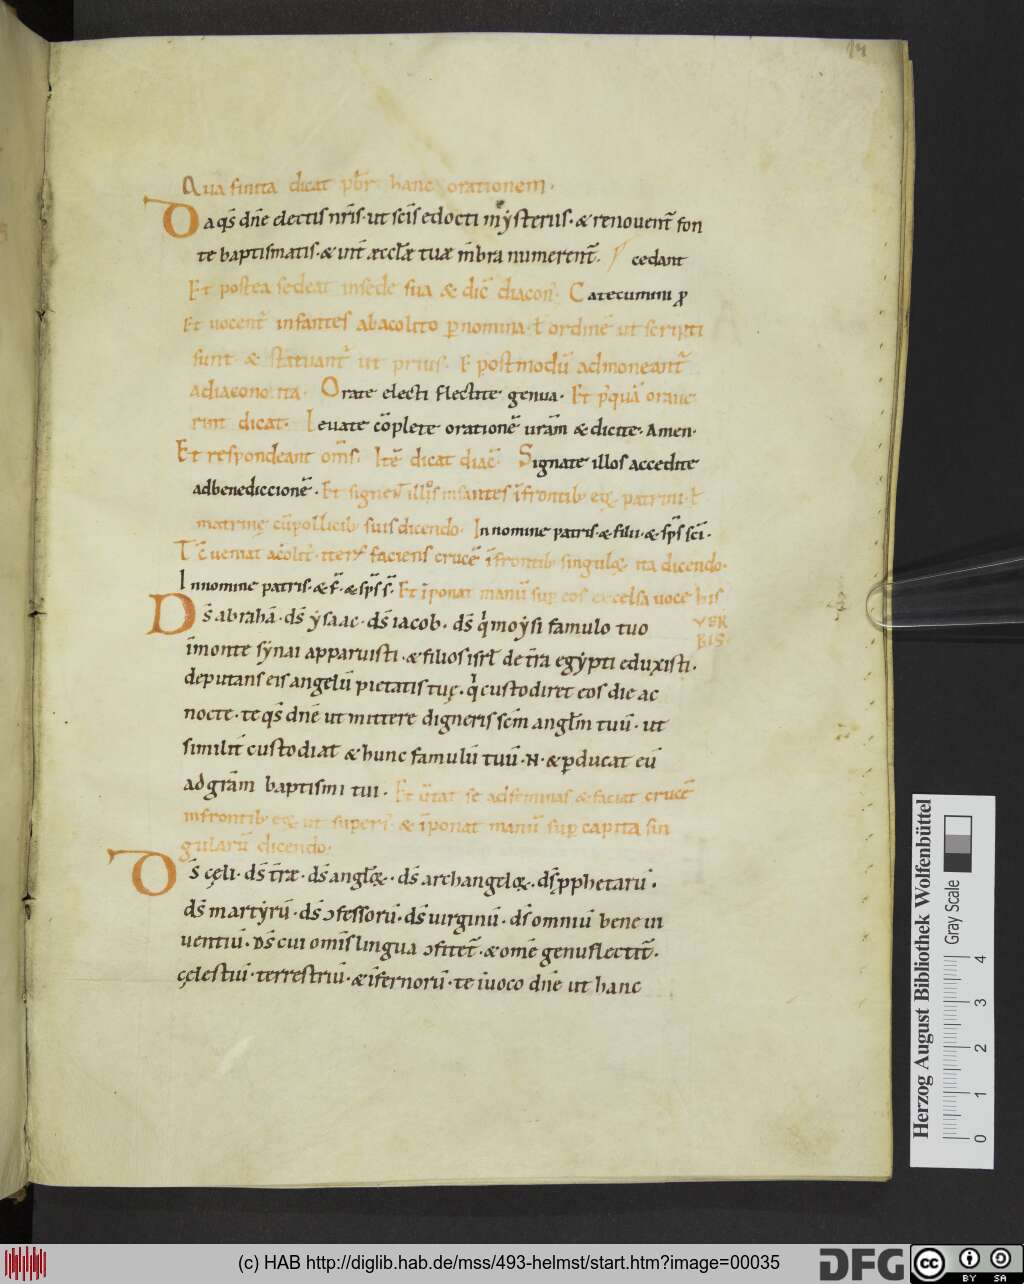 14
Qua finita dicat pbr̄ hanc orationem.
Da qs̄ dn̄e electis nr̄is· ut sc̄is edocti mẏsteriis· & renouent᷑ fon
te baptismatis· & int̄ æccl̄æ tuæ m̄bra numerent᷑. cedant
Et postea sedeat insede sua & dic̄ diacon̄. Catecumini ꝓ
Et uocent᷑ infantes abacolito ꝑnomina· ł ordinē ut scripti
sunt & statuant᷑ ut prius. Et postmodū admoneant᷑
adiacono ita. Orate electi flectite genua. Et p᷑quā oraue
rint dicat. Leuate cōplete orationē ur̄am & dicite· Amen·
Et respondeant om̄s. Itē dicat diac̄. Signate illos accedite
adbenediccionē. Et signent᷑ illi ipsi infantes īfrontib; eiꝫ patrini· ł
matrinę cū pollicib; suis dicendo. Innomine patris· & filii· & sp̄s sc̄i.
Tc̄ ueniat acolit᷑· iterū faciens crucē īfrontib; singulꝝ ita dicendo.
Innomine patris· & f̄· & sp̄s s̄. Et īponat manū sup̱ eos excelsa uoce his
VER
BIS·
Ds̄ abrahā· ds̄ ẏsaac· ds̄ iacob· ds̄ qͥ moẏsi famulo tuo
īmonte sẏnai apparuisti· & filios isrł de t̄ra egẏpti eduxisti·
deputans eis angelū pietatis tuę· qͥ custodiret eos die ac
nocte· te qs̄ dn̄e ut mittere digneris sc̄m angl̄m tuū· ut
similit̄ custodiat & hunc famulū tuū· N· & ꝑducat eū
ad gr̄am baptismi tui. Et ūtat se adfeminas & faciat crucē
infrontib; eaꝝ ut superi᷑ & īponat manū sup̱ capita sin
gularū dicendo.
Ds̄ cęli· ds̄ t̄ræ· ds̄ angl̄oꝝ· ds̄ archangeloꝝ· ds̄ ꝓphetarū·
ds̄ martẏrū· ds̄ ↄfessorū· ds̄ uirginū· ds̄ omniū bene ui
uentiū· Ds̄ cui omīs lingua ↄfitet᷑· & om̄e genu flectit᷑·
cęlestiū· terrestriū· & īfernorū· te īuoco dn̄e ut hanc
Herzog August Bibliothek Wolfenbüttel
Gray Scale
0 1 2 3 4
(c) HAB http://diglib.hab.de/mss/493-helmst/start.htm?image=00035
DFG
cc BY SA